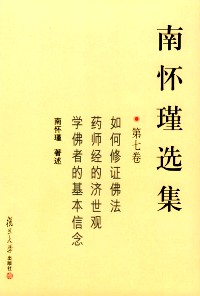 南怀瑾选集
第七卷
如何修证佛法
药师经的济世观
学佛者的基本信念
南怀瑾 著述
复旦大学出版社